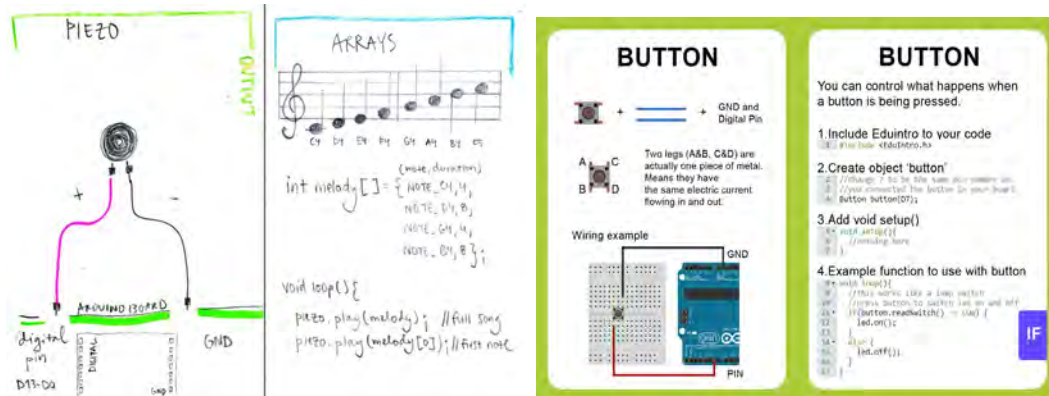 PIEZO
OUTPUT
+
-
ARDUINO BOARD
digital
pin
D13-D0
DIGITAL
GND
GND
ARRAYS
C4 D4 E4 F4 G4 A4 B4 C5
(note, duration)
int melody[] = { NOTE_C4, 4,
NOTE_D4, 8,
NOTE_G4, 4,
NOTE_B4, 8 };
void loop() {
piezo.play(melody); //full song
piezo.play(melody[0]); //first note
BUTTON
+
+
GND and
Digital Pin
A
C
B
D
Two legs (A&B, C&D) are
actually one piece of metal.
Means they have
the same electric current
flowing in and out.
Wiring example
GND
PIN
BUTTON
You can control what happens when
a button is being pressed.
1.Include Eduintro to your code
#include <EduIntro.h>
2.Create object 'button'
Button button(D7);
3.Add void setup()
void setup(){
//nothing here
}
4.Example function to use with button
void loop(){
//this works like a lamp switch
//press button to switch led on and off
if(button.readSwitch() == LOW) {
led.on();
}
else {
led.off();
}
}
IF